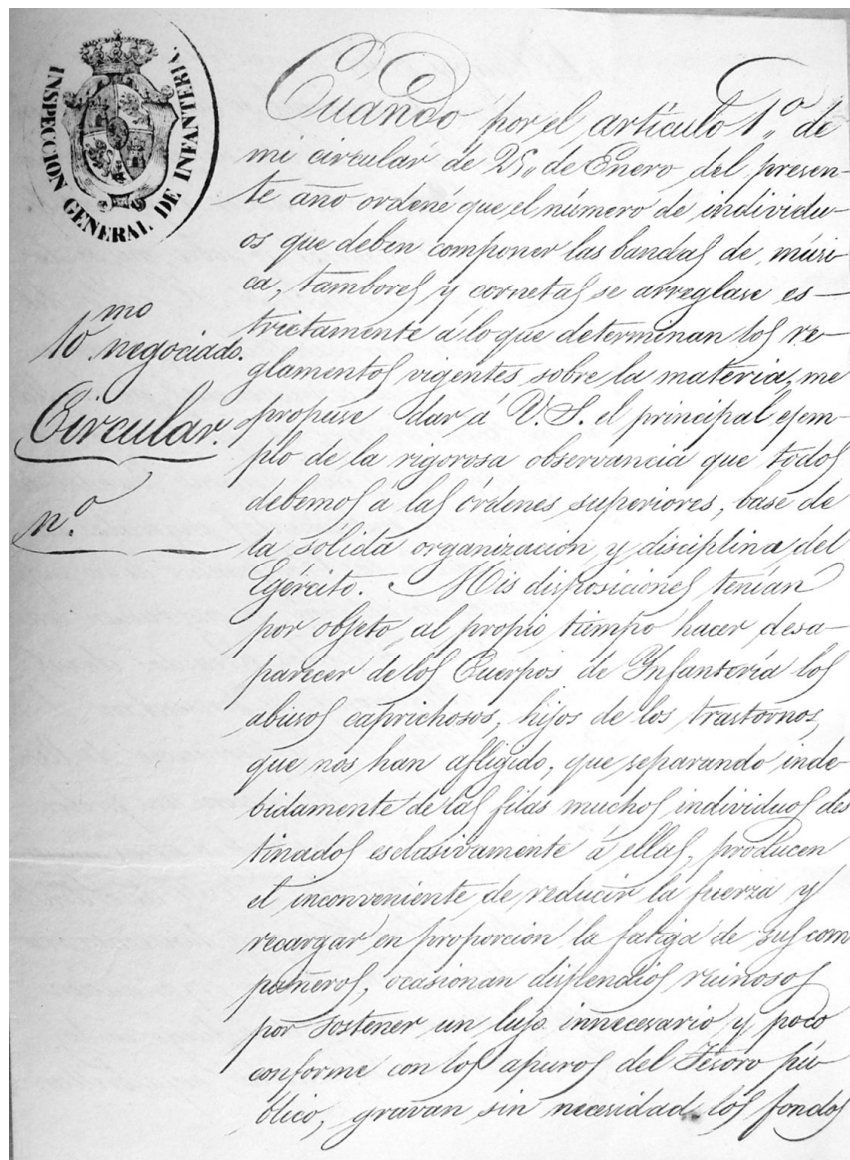 INSPECCION GENERAL DE INFANTERIA.
10.mo negociado.
Circular.
n.o
Cuando por el artículo 1.o de
mi circular de de Enero del presen-
te año ordené que el número de individu-
os que deben componer las bandas de músi
ca, tambores y cornetas se arreglase es-
trictamente á lo que determinan los re-
glamentos vigentes sobre la materia, me
propuse dar á V. S. el principal ejem-
plo de la rigorosa observancia que todos
debemos á las órdenes superiores, base de
la sólida organización y disciplina del
Egército. Mis disposiciones tenían
por objeto al propio tiempo hacer desa-
parecer de los Cuerpos de Infantería los
abusos caprichosos, hijos de los trastornos,
que nos han afligido, que separando inde-
bidamente de las filas muchos individuos des
tinados esclusivamente á ellas, producen
el inconveniente de reducir la fuerza y
recargar en proporción la fatiga de sus com
pañeros, ocasionan dispendios ruinosos
por sostener un lujo innecesario y poco
conforme con los apuros del Tesoro pú
blico, gravan sin necesidad los fondos